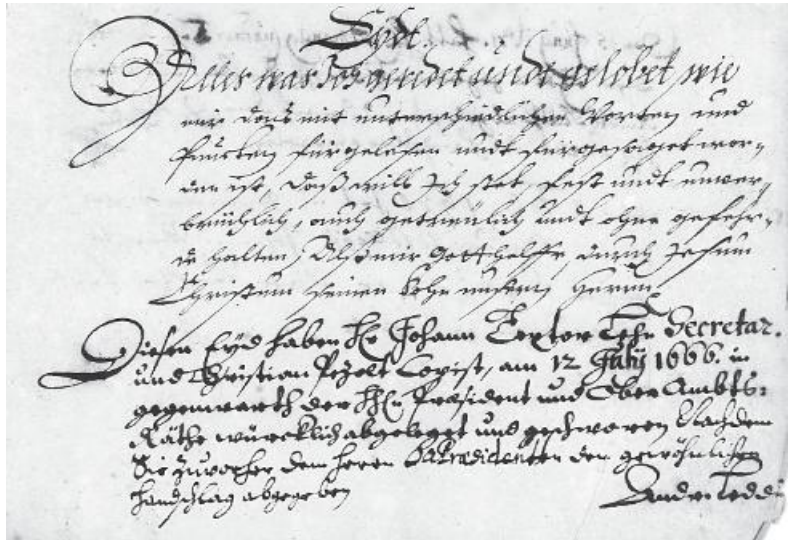 Eydt.
Alles was Ich geredet undt gelobet, wie
mir das mit unterschiedlichen Worten und
Puncten fürgelesen undt fürgesaget wor-
den ist, daß will Ich stet, fest undt unver-
brüchlich, auch getreülich undt ohne gefehr-
de halten, Alß mir Gott helffe, durch Jesum
Christum seinen Sohn unsern Herrn
Diesen Eyd haben Hr Johann Textor Lehn Secretar.
und Christian Pezolt Copist, am 12 July 1666. in
gegenwarth der HHr. Præsident und Ober Ambts-
Räthe würcklich abgeleget und geschworen Nachdem
Sie zuvorher dem Herren Præsidenten den gewöhnlichen
handschlag abgegeben